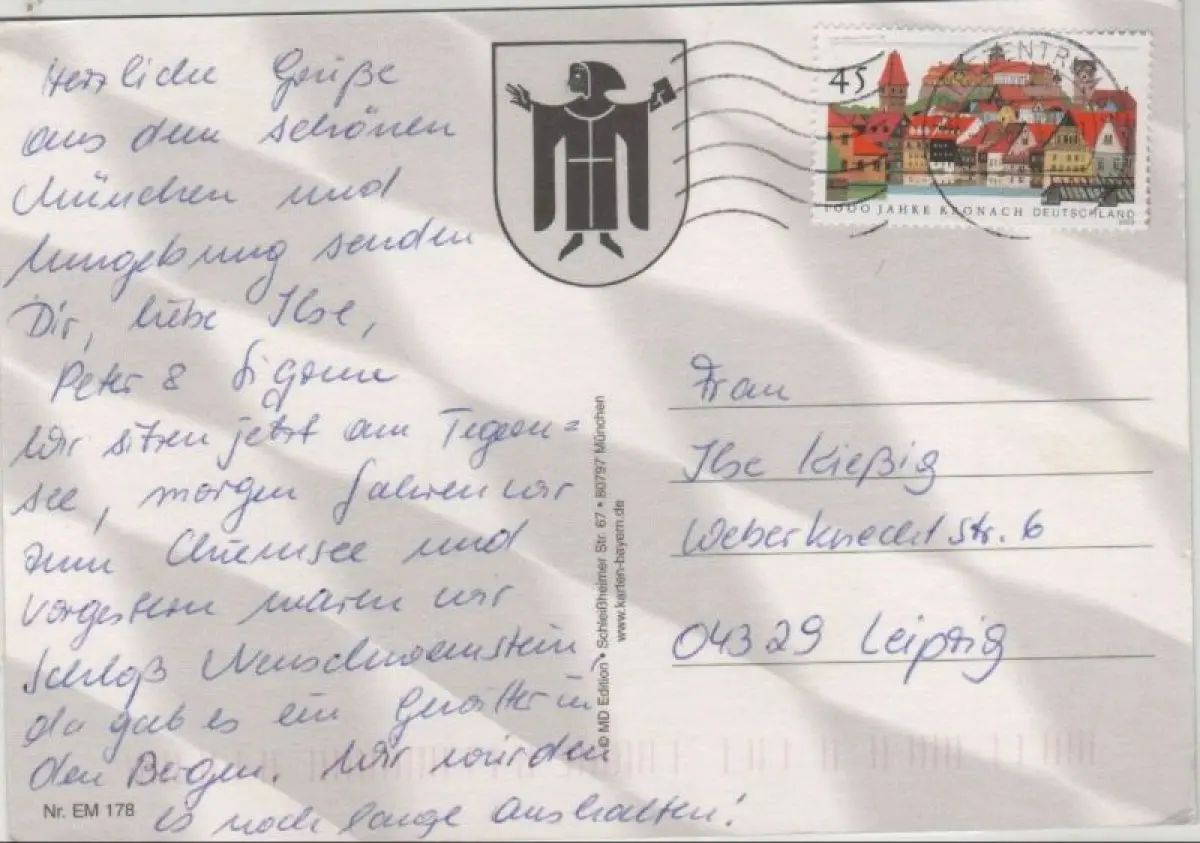 Herzliche Grüße
aus dem schönen
München und
Umgebung senden
Dir, liebe Ilse,
Peter &
Wir sitzen jetzt am Tegern=
see, morgen fahren wir
zum Chiemsee und
vorgestern waren wir
Schloß Neuschwanstein
da gab es ein Gewitter in
den Bergen. Wir würden
es noch lange aushalten!
Nr. EM 178
© MD Edition • Schleißheimer Str. 67 • 80797 München
www.karten-bayern.de
45
1000 JAHRE KRONACH DEUTSCHLAND
Frau
Ilse Kießig
Weberknechtstr. 6
04329 Leipzig